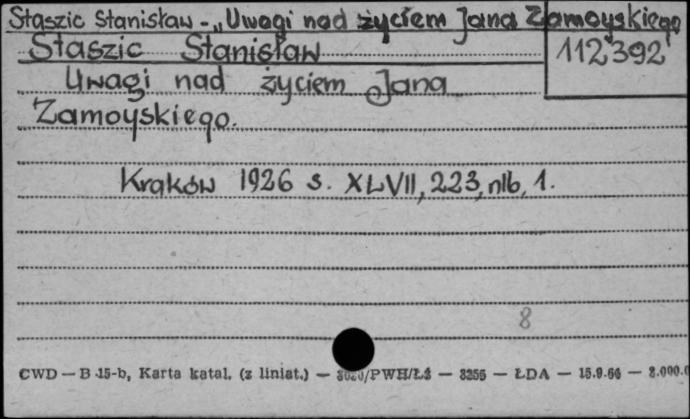 Staszic Stanisław - „Uwagi nad życiem Jana Zamoyskiego
Staszic Stanisław
112392
Uwagi nad życiem Jana
Zamoyskiego.
Kraków 1926 s. XLVII, 223, nlb, 1.
8
CWD — B 15-b, Karta katal. (z liniat.) — — 3255 — ŁDA — 15.9.66 —